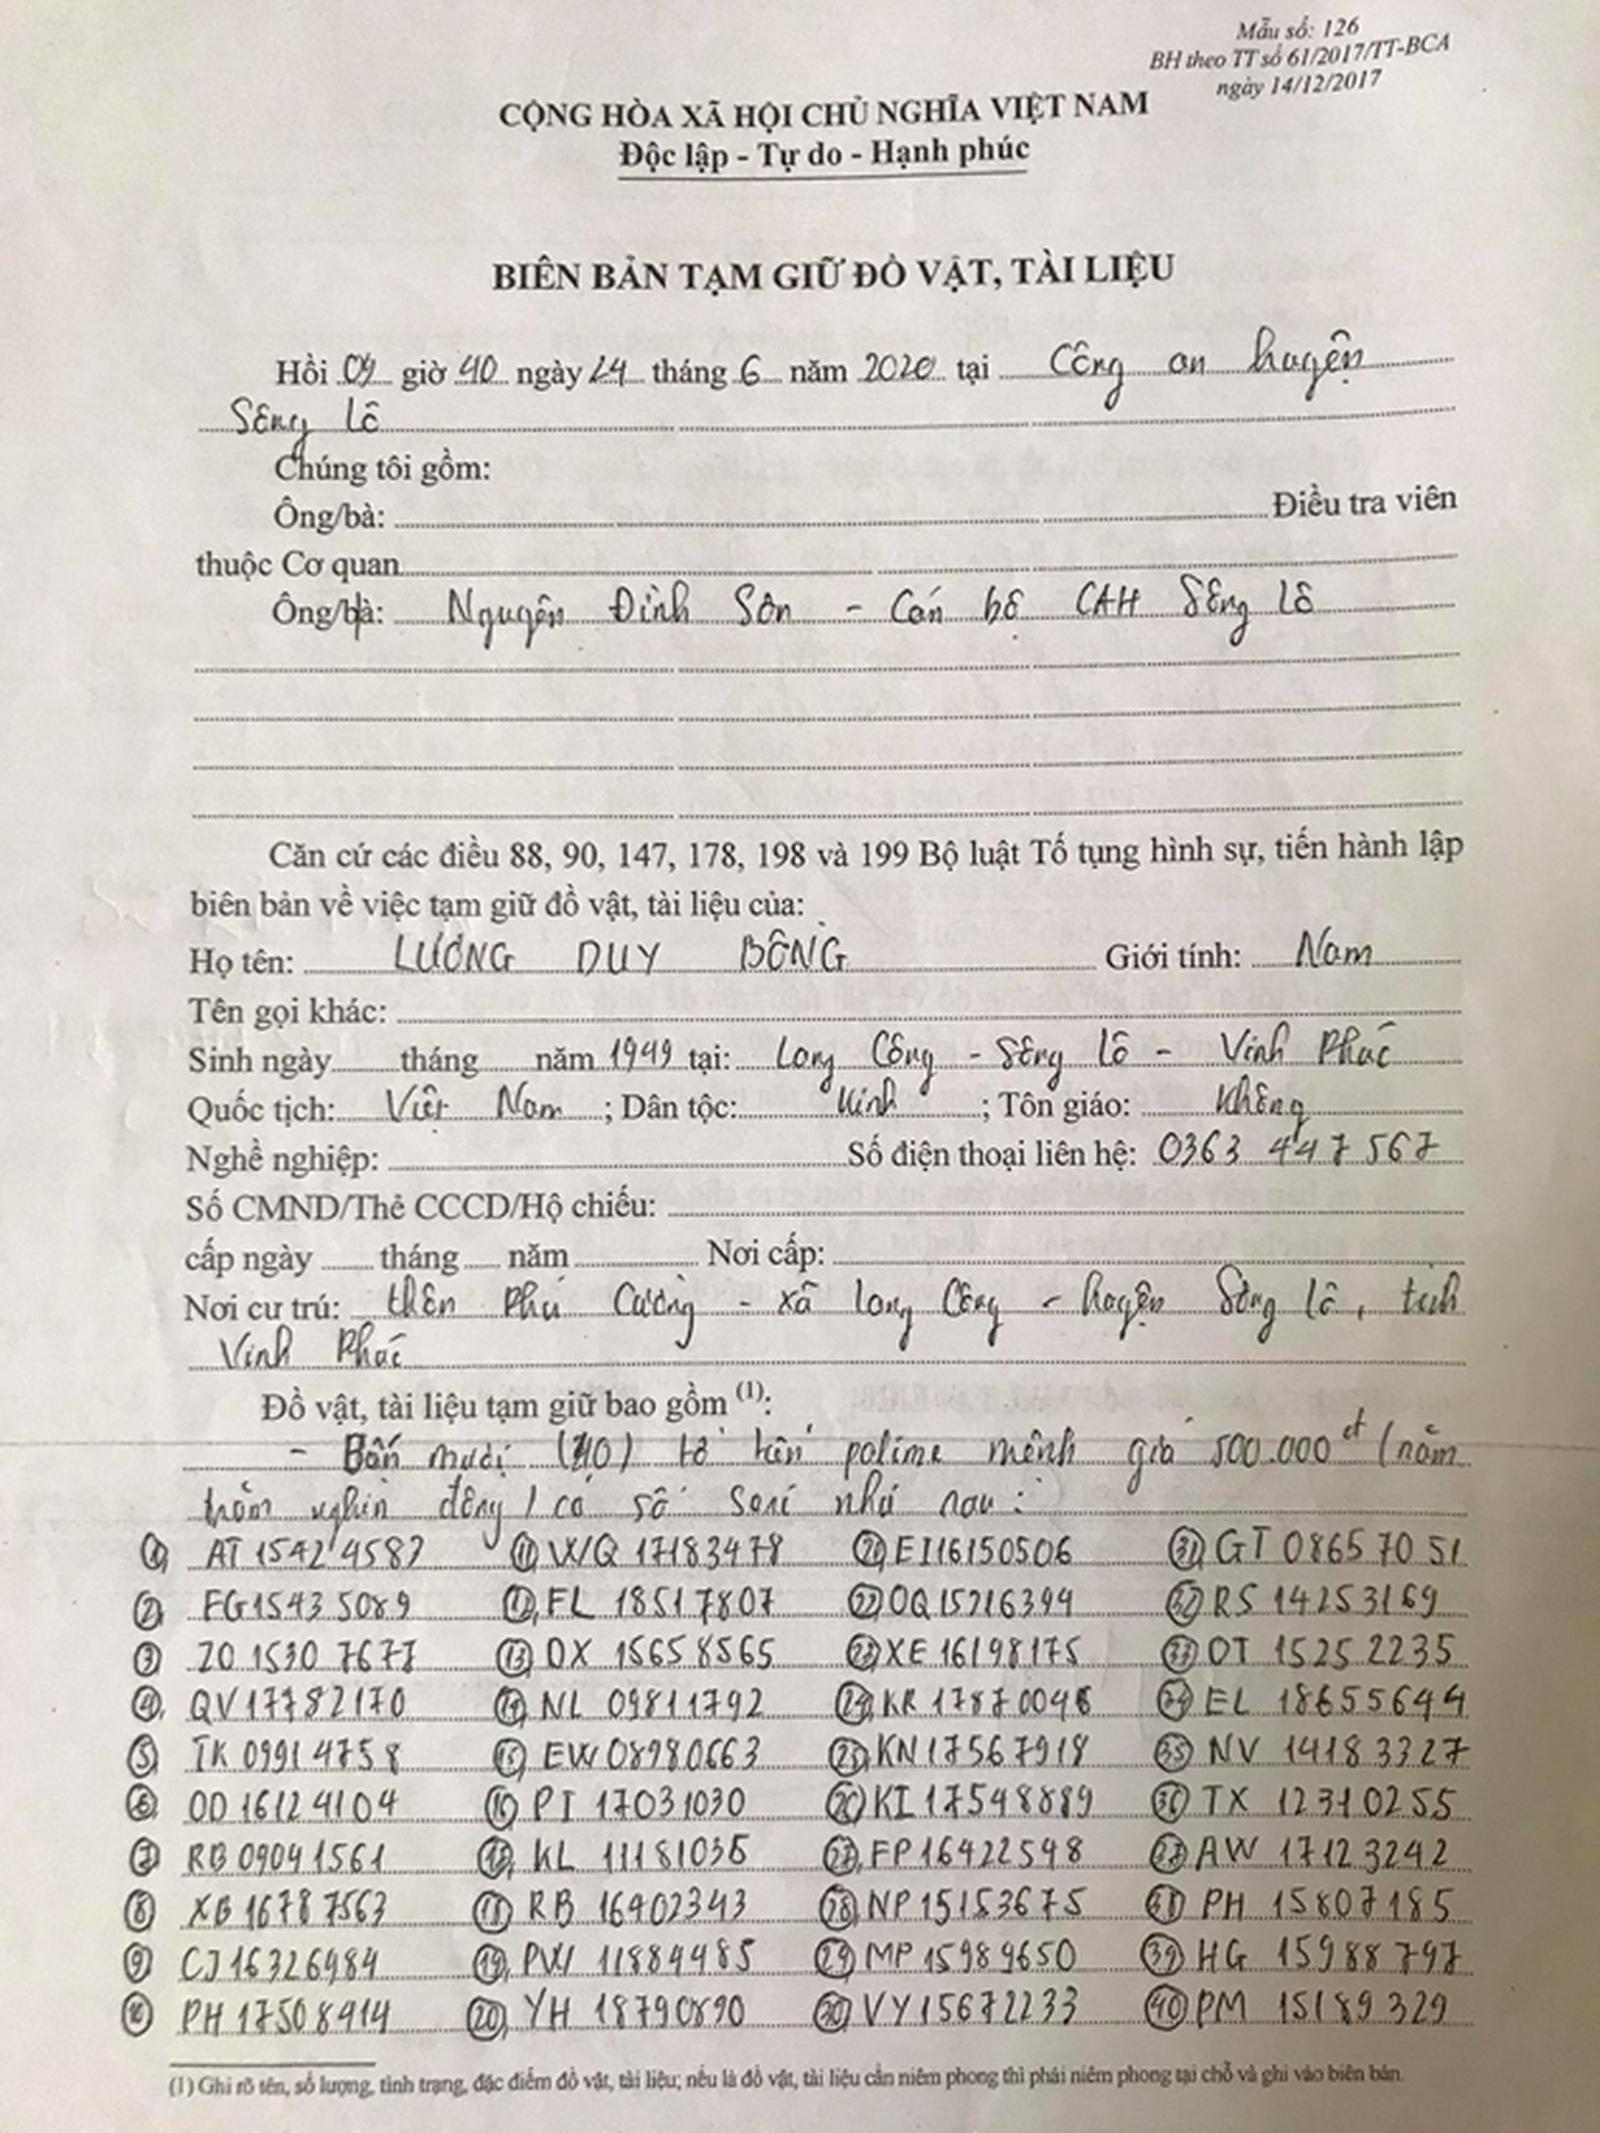 Mẫu số: 126
BH theo TT số 61/2017/TT-BCA
ngày 14/12/2017
CỘNG HÒA XÃ HỘI CHỦ NGHĨA VIỆT NAM
Độc lập - Tự do - Hạnh phúc
BIÊN BẢN TẠM GIỮ ĐỒ VẬT, TÀI LIỆU
Hồi giờ 40 ngày 24 tháng 6 năm 2020 tại Công an huyện
Sông Lô
Chúng tôi gồm:
Ông/bà: Điều tra viên
thuộc Cơ quan
Ông/bà: Nguyễn Đình Sơn - Cán bộ CAH Sông Lô
Căn cứ các điều 88, 90, 147, 178, 198 và 199 Bộ luật Tố tụng hình sự, tiến hành lập
biên bản về việc tạm giữ đồ vật, tài liệu của:
Họ tên: LƯƠNG DUY BỒNG Giới tính: Nam
Tên gọi khác:
Sinh ngày tháng năm 1949 tại: Lãng Công - Sông Lô - Vĩnh Phúc
Quốc tịch: Việt Nam ; Dân tộc: Kinh ; Tôn giáo: Không
Nghề nghiệp: Số điện thoại liên hệ: 0363 447 567
Số CMND/Thẻ CCCD/Hộ chiếu:
cấp ngày tháng năm Nơi cấp:
Nơi cư trú: thôn Phú Cường - xã Lãng Công - huyện Sông Lô, tỉnh
Vĩnh Phúc
Đồ vật, tài liệu tạm giữ bao gồm (1):
- Bốn mươi (40) tờ tiền polime mệnh giá 500.000đ (năm
trăm nghìn đồng) có số seri như sau:
① AT 15424587 ⑪ WQ 17183478 ㉑ EI 16150506 ㉛ GT 08657051
② FG 15435089 ⑫ FL 18517807 ㉒ OQ 15216394 ㉜ RS 14253169
③ ZO 15307677 ⑬ OX 15658565 ㉓ XE 16198175 ㉝ OT 15252235
④ QV 17782170 ⑭ NL 09811792 ㉔ KR 17870046 ㉞ EL 18655644
⑤ TK 09914758 ⑮ EW 08980663 ㉕ KN 17567918 ㉟ NV 14183327
⑥ OD 16124104 ⑯ PI 17031030 ㉖ KI 17548889 ㊱ TX 12310255
⑦ RB 09041561 ⑰ KL 11181035 ㉗ FP 16422548 ㊲ AW 17123242
⑧ XB 16787563 ⑱ RB 16402343 ㉘ NP 15153675 ㊳ PH 15807185
⑨ CJ 16326984 ⑲ PW 11884485 ㉙ MP 15989650 ㊴ HG 15988797
⑩ PH 17508414 ⑳ YH 18790890 ㉚ VY 15672233 ㊵ PM 15189329
(1) Ghi rõ tên, số lượng, tình trạng, đặc điểm đồ vật, tài liệu; nếu là đồ vật, tài liệu cần niêm phong thì phải niêm phong tại chỗ và ghi vào biên bản.